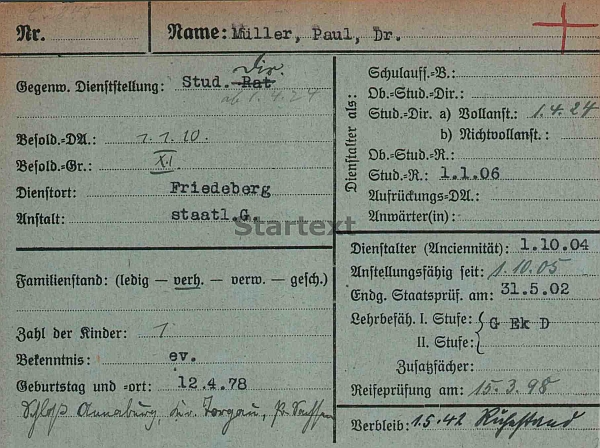 Nr.
Name: Müller, Paul, Dr.
Dir.
Gegenw. Dienststellung: Stud.-Rat
ab 1.4.24
Besold.=DA.: 1.1.10.
Besold.=Gr.: XI
Dienstort: Friedeberg
Anstalt: staatl.G.
Familienstand: (ledig — verh. — verw. — gesch.)
Zahl der Kinder: 1
Bekenntnis: ev.
Geburtstag und =ort: 12.4.78
Schloß Annaburg, Kr. Torgau, Pr. Sachsen
Dienstalter als:
Schulauff.=B.:
Ob.=Stud.=Dir.:
Stud.=Dir. a) Vollanst.: 1.4.24
b) Nichtvollanst.:
Ob.=Stud.=R.:
Stud.=R.: 1.1.06
Aufrückungs=DA.:
Anwärter(in):
Dienstalter (Anciennität): 1.10.04
Anstellungsfähig seit: 1.10.05
Endg. Staatsprüf. am: 31.5.02
Lehrbefäh. I. Stufe: G Ek D
II. Stufe:
Zusatzfächer:
Reifeprüfung am: 15.3.98
Verbleib: 1.5.42 Ruhestand
Startext